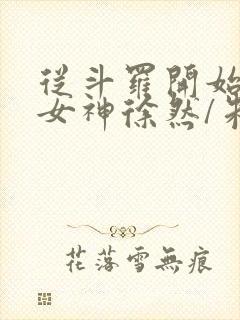 從斗羅開始
女神徐然/朱
花落雪無痕